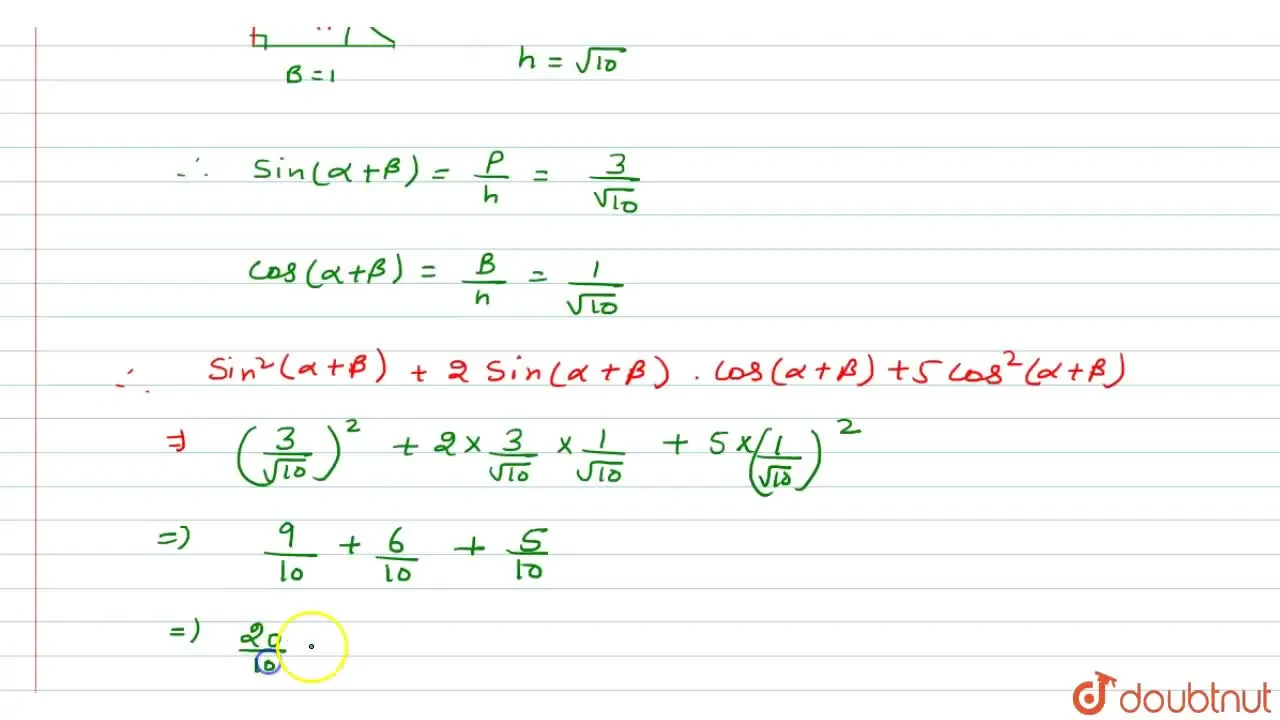 B = 1
h = √10
∴ Sin(α+β) = P/h = 3/√10
cos(α+β) = B/h = 1/√10
∴ Sin²(α+β) + 2 Sin(α+β) . cos(α+β) + 5 cos²(α+β)
⇒ (3/√10)² + 2 × 3/√10 × 1/√10 + 5 × (1/√10)²
=) 9/10 + 6/10 + 5/10
=) 20/10
doubtnut